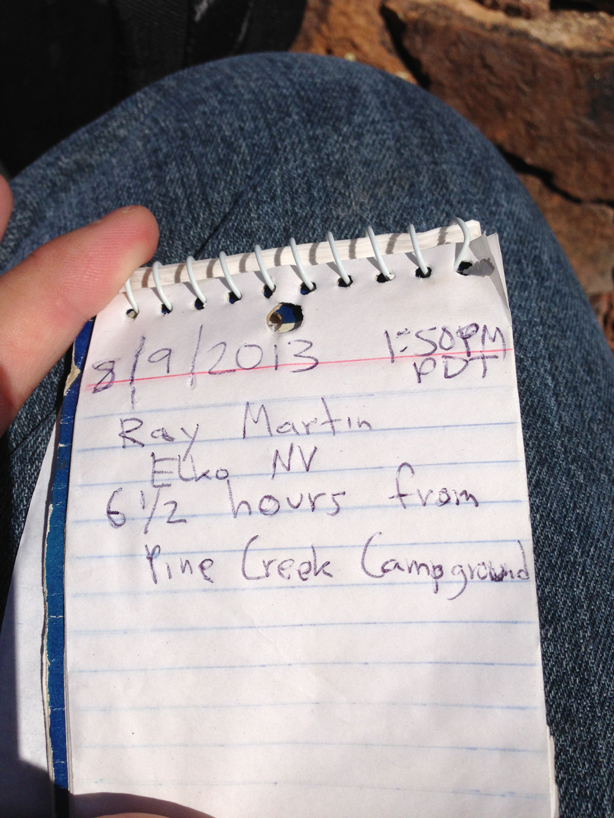 8/9/2013 1:50PM
PDT
Ray Martin
Elko NV
6 1/2 hours from
Pine Creek Campground